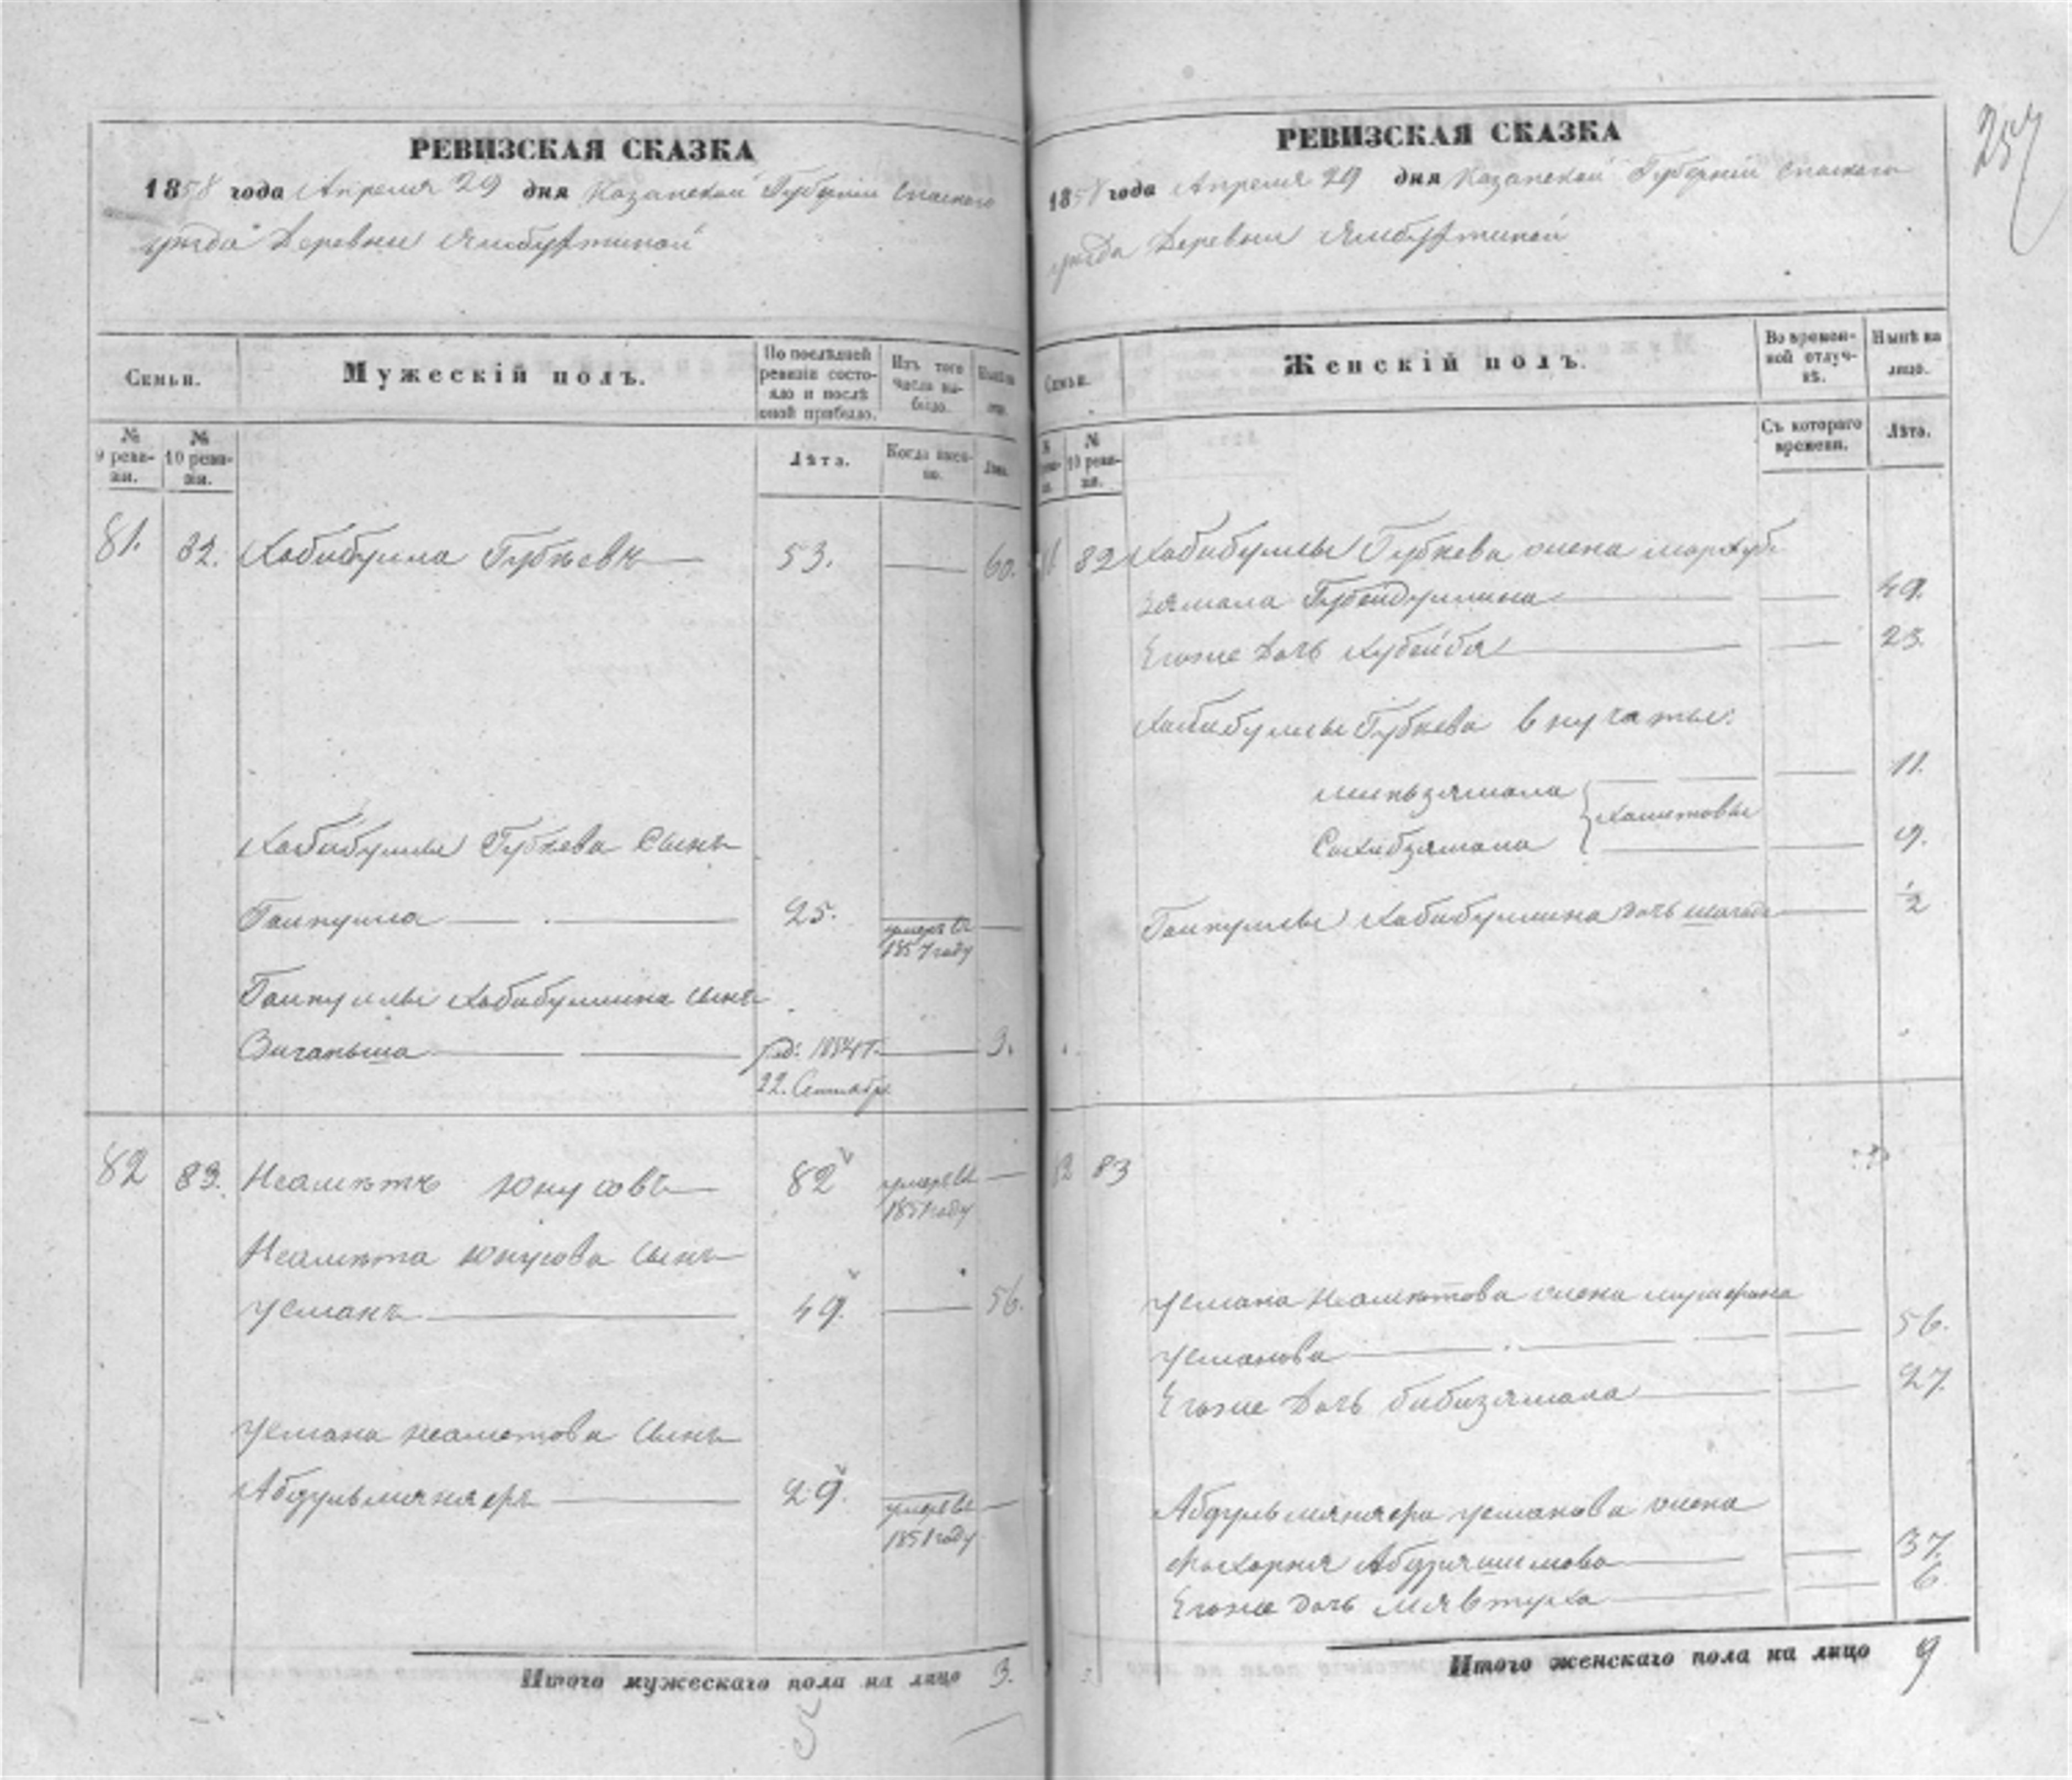 РЕВИЗСКАЯ СКАЗКА
1858 года Апреля 29 дня Казанской Губернiи Спаскаго
уезда Деревни Ямбухтиной
Семьи.
Мужескiй полъ.
По послѣдней ревизiи состо-
яло и послѣ
оной прибыло.
Изъ того
числа вы-
было.
№
9 реви-
зiи.
№
10 реви-
зiи.
Лѣта.
Когда имен-
но.
Лѣта.
81. 82. Хабибулла Губѣевъ 53. 60.
Хабибуллы Губѣева Сынъ
Гайнулла 25. умеръ въ
1857 году
Гайнуллы Хабибуллина сынъ
Зиганьша род. 1854 г. 3.
22. Сентябр.
82 83. Неаметъ Юнусовъ 82 умеръ въ
1851 году
Неамета Юнусова сынъ
Усманъ 49. 56.
Усмана Неаметова сынъ
Абдульмяняфъ 29. умеръ въ
1851 году
Итого мужескаго пола на лицо 3.
257
РЕВИЗСКАЯ СКАЗКА
1858 года Апреля 29 дня Казанской Губернiи Спаскаго
уезда Деревни Ямбухтиной
Семьи.
Женскiй полъ.
Во времен-
ной отлуч-
кѣ.
Нынѣ на
лицо.
№
10 реви-
зiи.
Съ котораго
времени.
Лѣта.
82 Хабибуллы Губѣева жена
зямала Губейдуллина 49.
Егоже дочь Хубейбя 23.
Хабибуллы Губѣева внучаты:
миньзямала 11.
Хаметовы
Сахибзямала 9.
Гайнуллы Хабибуллина дочь 1/2
82 83
Усмана Неаметова жена
Усманова 56.
Егоже дочь бибизямала 27.
Абдульмяняфа Усманова жена
Абдряшитова 37.
Егоже дочь Мявтуха 6.
Итого женскаго пола на лицо 9